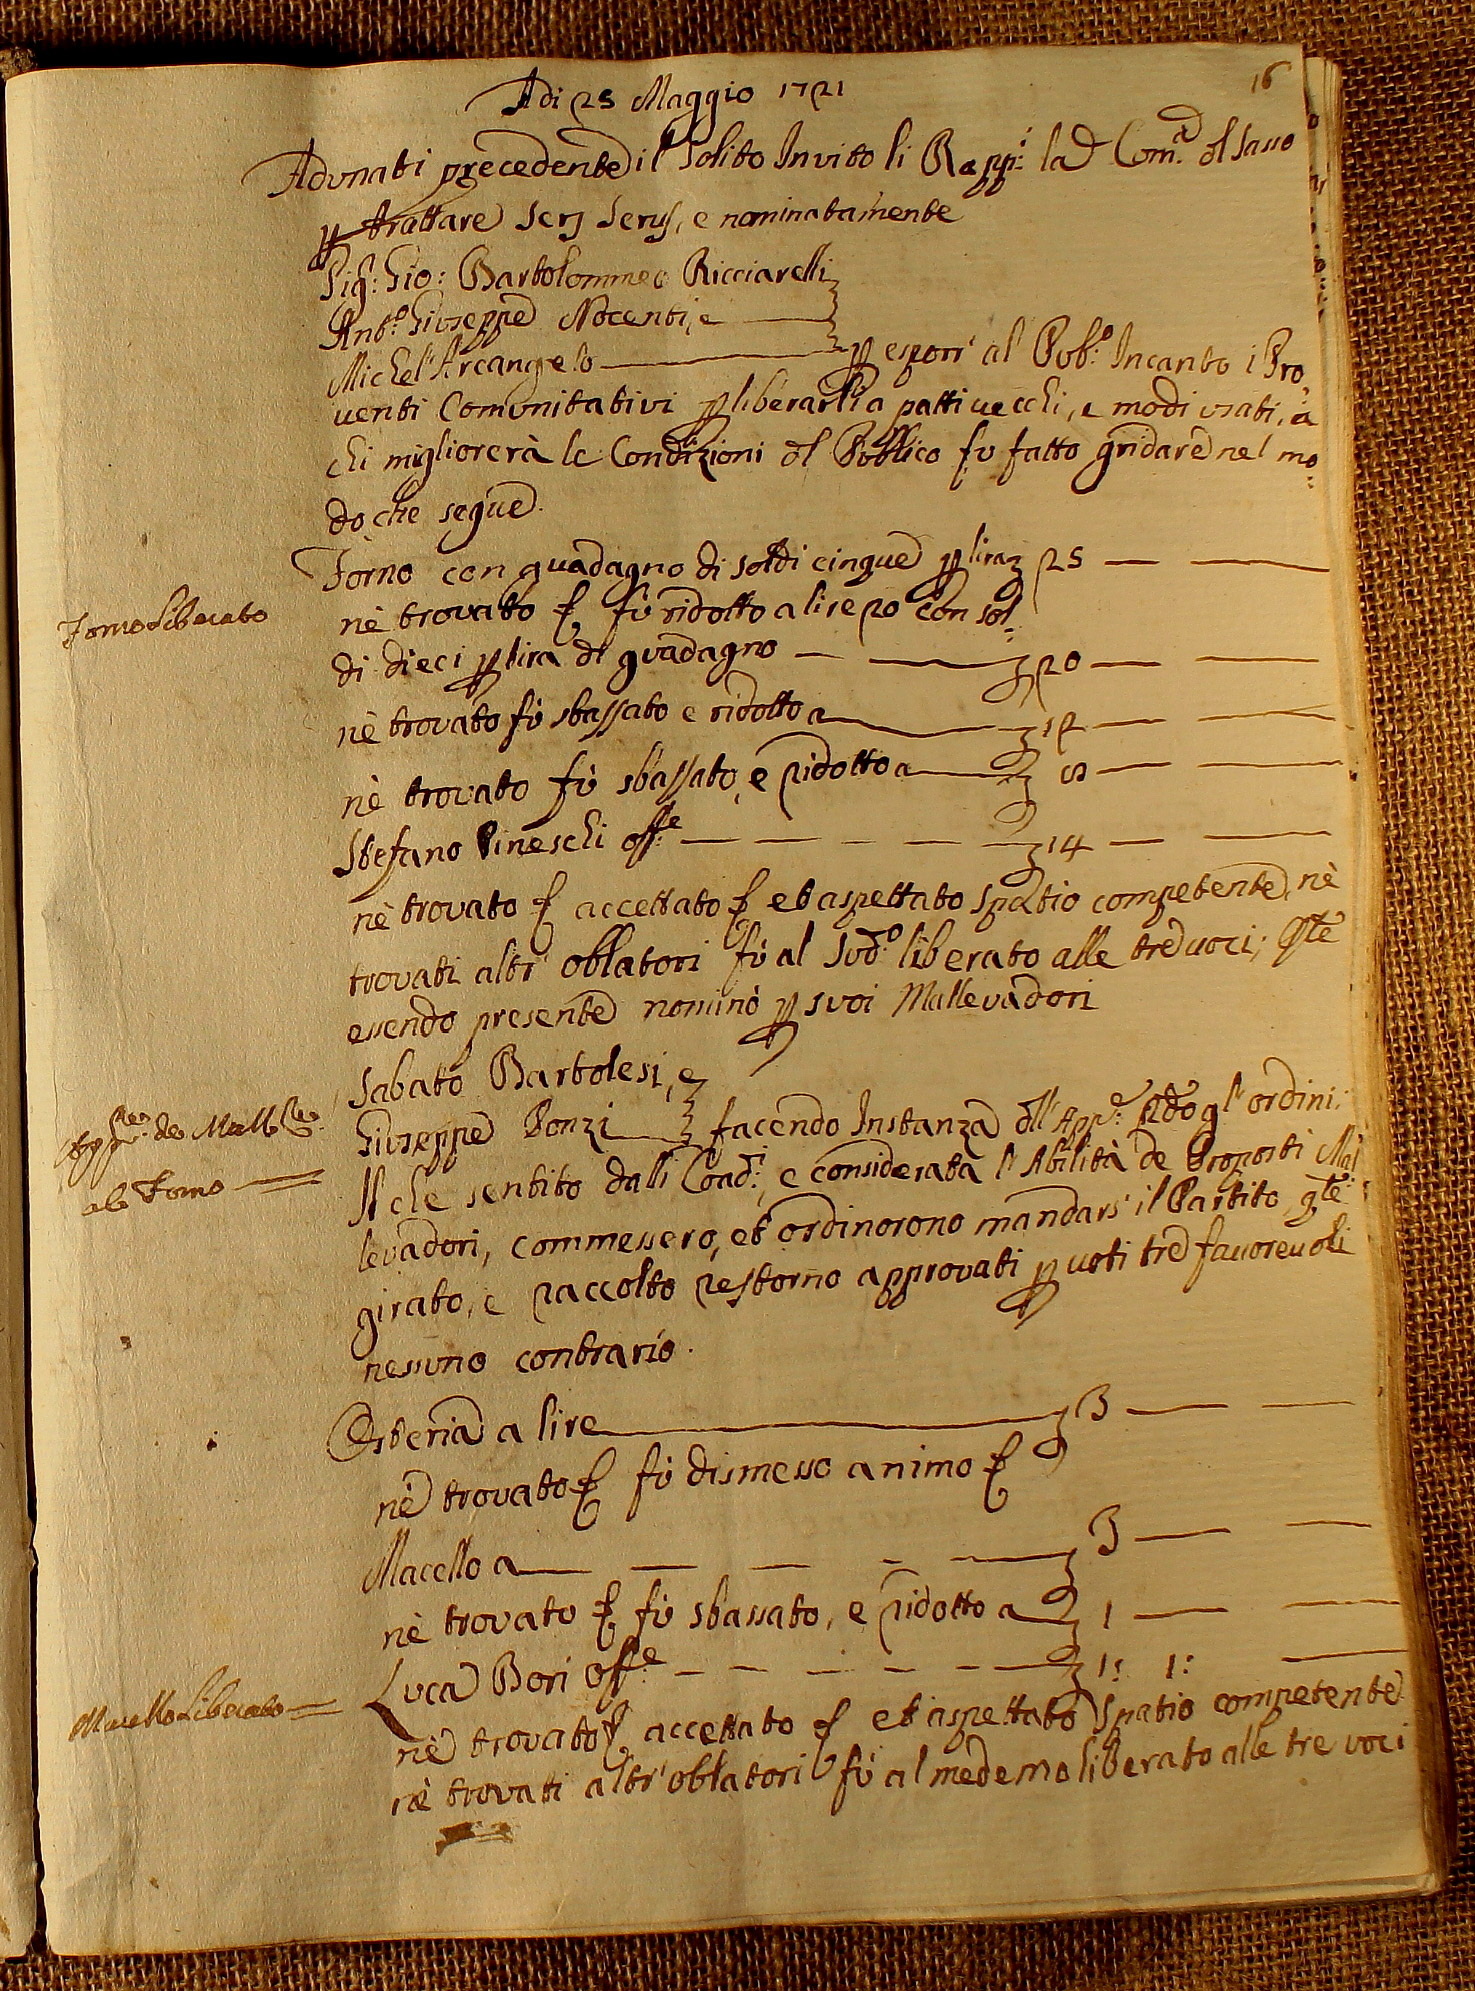 16
Adi 25 Maggio 1721
Adunati precedente il Solito Invito li Rapp:i la Com:a del Sasso
p trattare Serj Serus, e nominatamente
Sig: Gio: Bartolommeo Ricciarelli
Ant:o Giuseppe Nocenti, e
Michel'Arcangelo p esporr' al Pub:o Incanto i Pro:
venti Comunitativi p liberarli a patti vecchi, e modi usati, a
chi migliorerà le Condizioni del Pubblico fu fatto gridare nel mo:
do che segue.
Forno con guadagno di soldi cinque p lira 25
nè trovato fù ridotto a lire 20 con sol:
di dieci p lira di guadagno 20
Forno Liberato
nè trovato fù sbassato e ridotto a 12
nè trovato fù sbassato, e ridotto a 8
Stefano Pineschi off:e 14
nè trovato accettato et aspettato spatio competente, nè
trovati altr' oblatori fù al Sud:o liberato alle tre voci; Q:te
essendo presente nominò p suoi Mallevadori
Sabato Bartolesi, e
Giuseppe Ponzi facendo Instanza dell'App:e s:do gl'ordini:
App:ne de Mall:ri
al Forno
Il che sentito dalli Coad:i, e considerata l'Abilità de Proposti Mal:
levadori, commessero, et ordinorono mandars' il Partito, q:te
girato, e raccolto restorno approvati p voti tre favorevoli
nessuno contrario.
Osteria a lire 3
nè trovato fù dismesso animo
Macello a 3
nè trovato fù sbassato, e ridotto a 1
Luca Bori off:e 1: 1:
Macello Liberato
nè trovato accettato et aspettato spatio competente
nè trovati altr'oblatori fù al medemo liberato alle tre voci